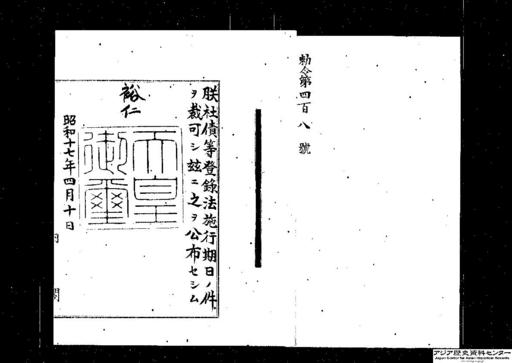 勅令第四百八號
朕社債等登錄法施行期日ノ件
ヲ裁可シ茲ニ之ヲ公布セシム
裕仁
天皇
御璽
昭和十七年四月十日
アジア歴史資料センター
Japan Center for Asian Historical Records